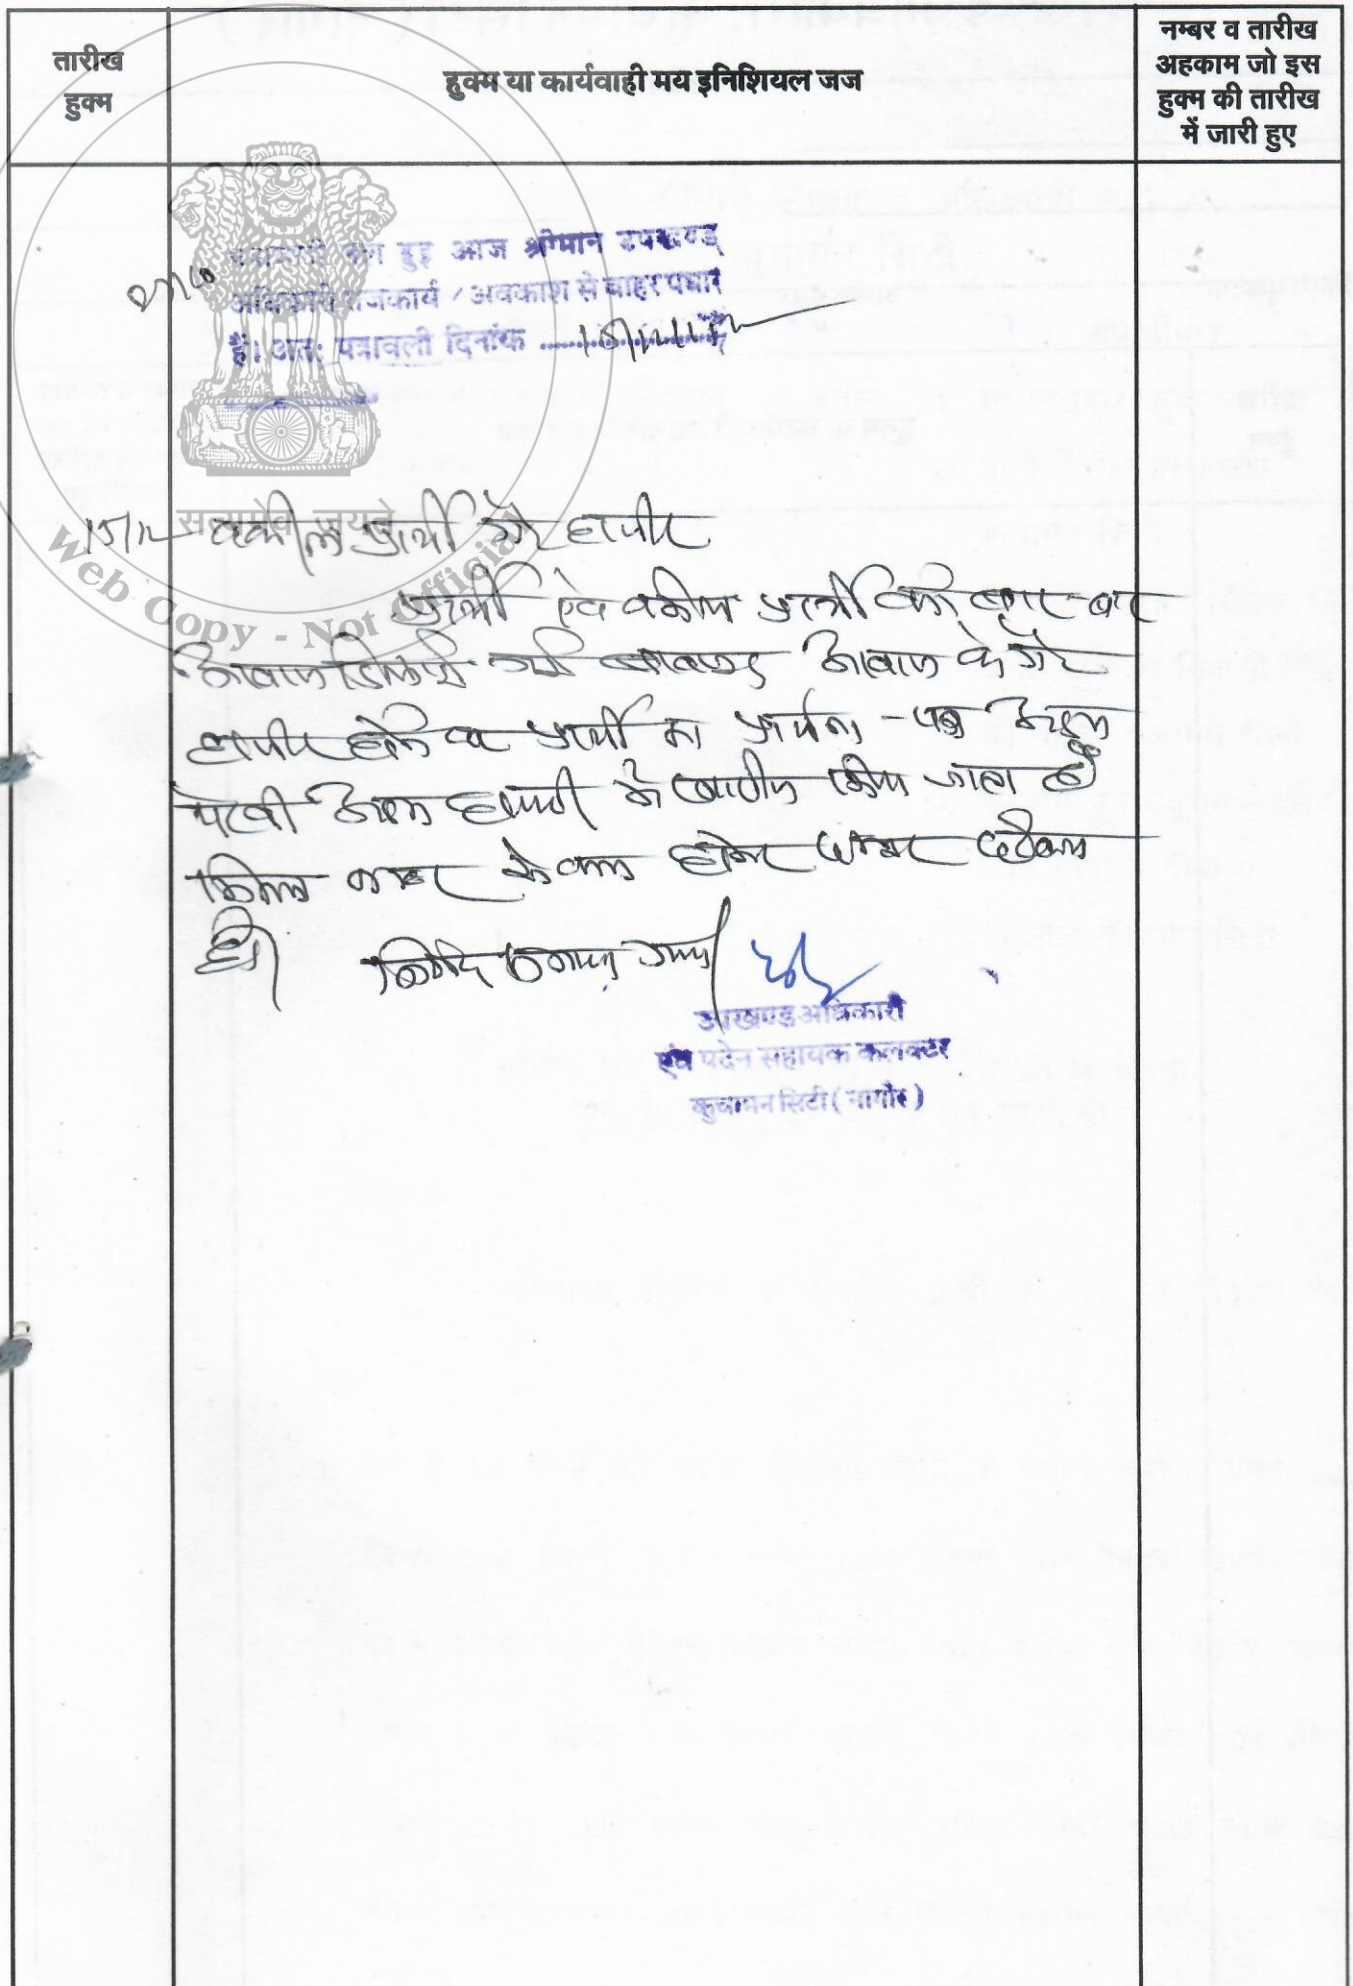 तारीख
हुक्म
हुक्म या कार्यवाही मय इनिशियल जज
नम्बर व तारीख
अहकाम जो इस
हुक्म की तारीख
में जारी हुए
पत्रावली पेश हुइ आज श्रीमान उपखण्ड
अधिकारी राजकार्य / अवकाश से बाहर पधारे
हैं। अतः पत्रावली दिनांक
सत्यमेव जयते
Web Copy - Not Official
15/12 वकील प्रार्थी गैर हाजीर
प्रार्थी एवं वकील प्रार्थी को बार-बार
आवाज दिलाई गयी बावजूद आवाज के गैर
हाजीर होने पर प्रार्थी का प्रार्थना-पत्र अदम
पैरवी अदम हाजरी में खारीज किया जाता है
नम्बर से कम होकर दाखिल दफ्तर
हो।
उपखण्ड अधिकारी
एवं पदेन सहायक कलक्टर
कुचामन सिटी ( नागौर )